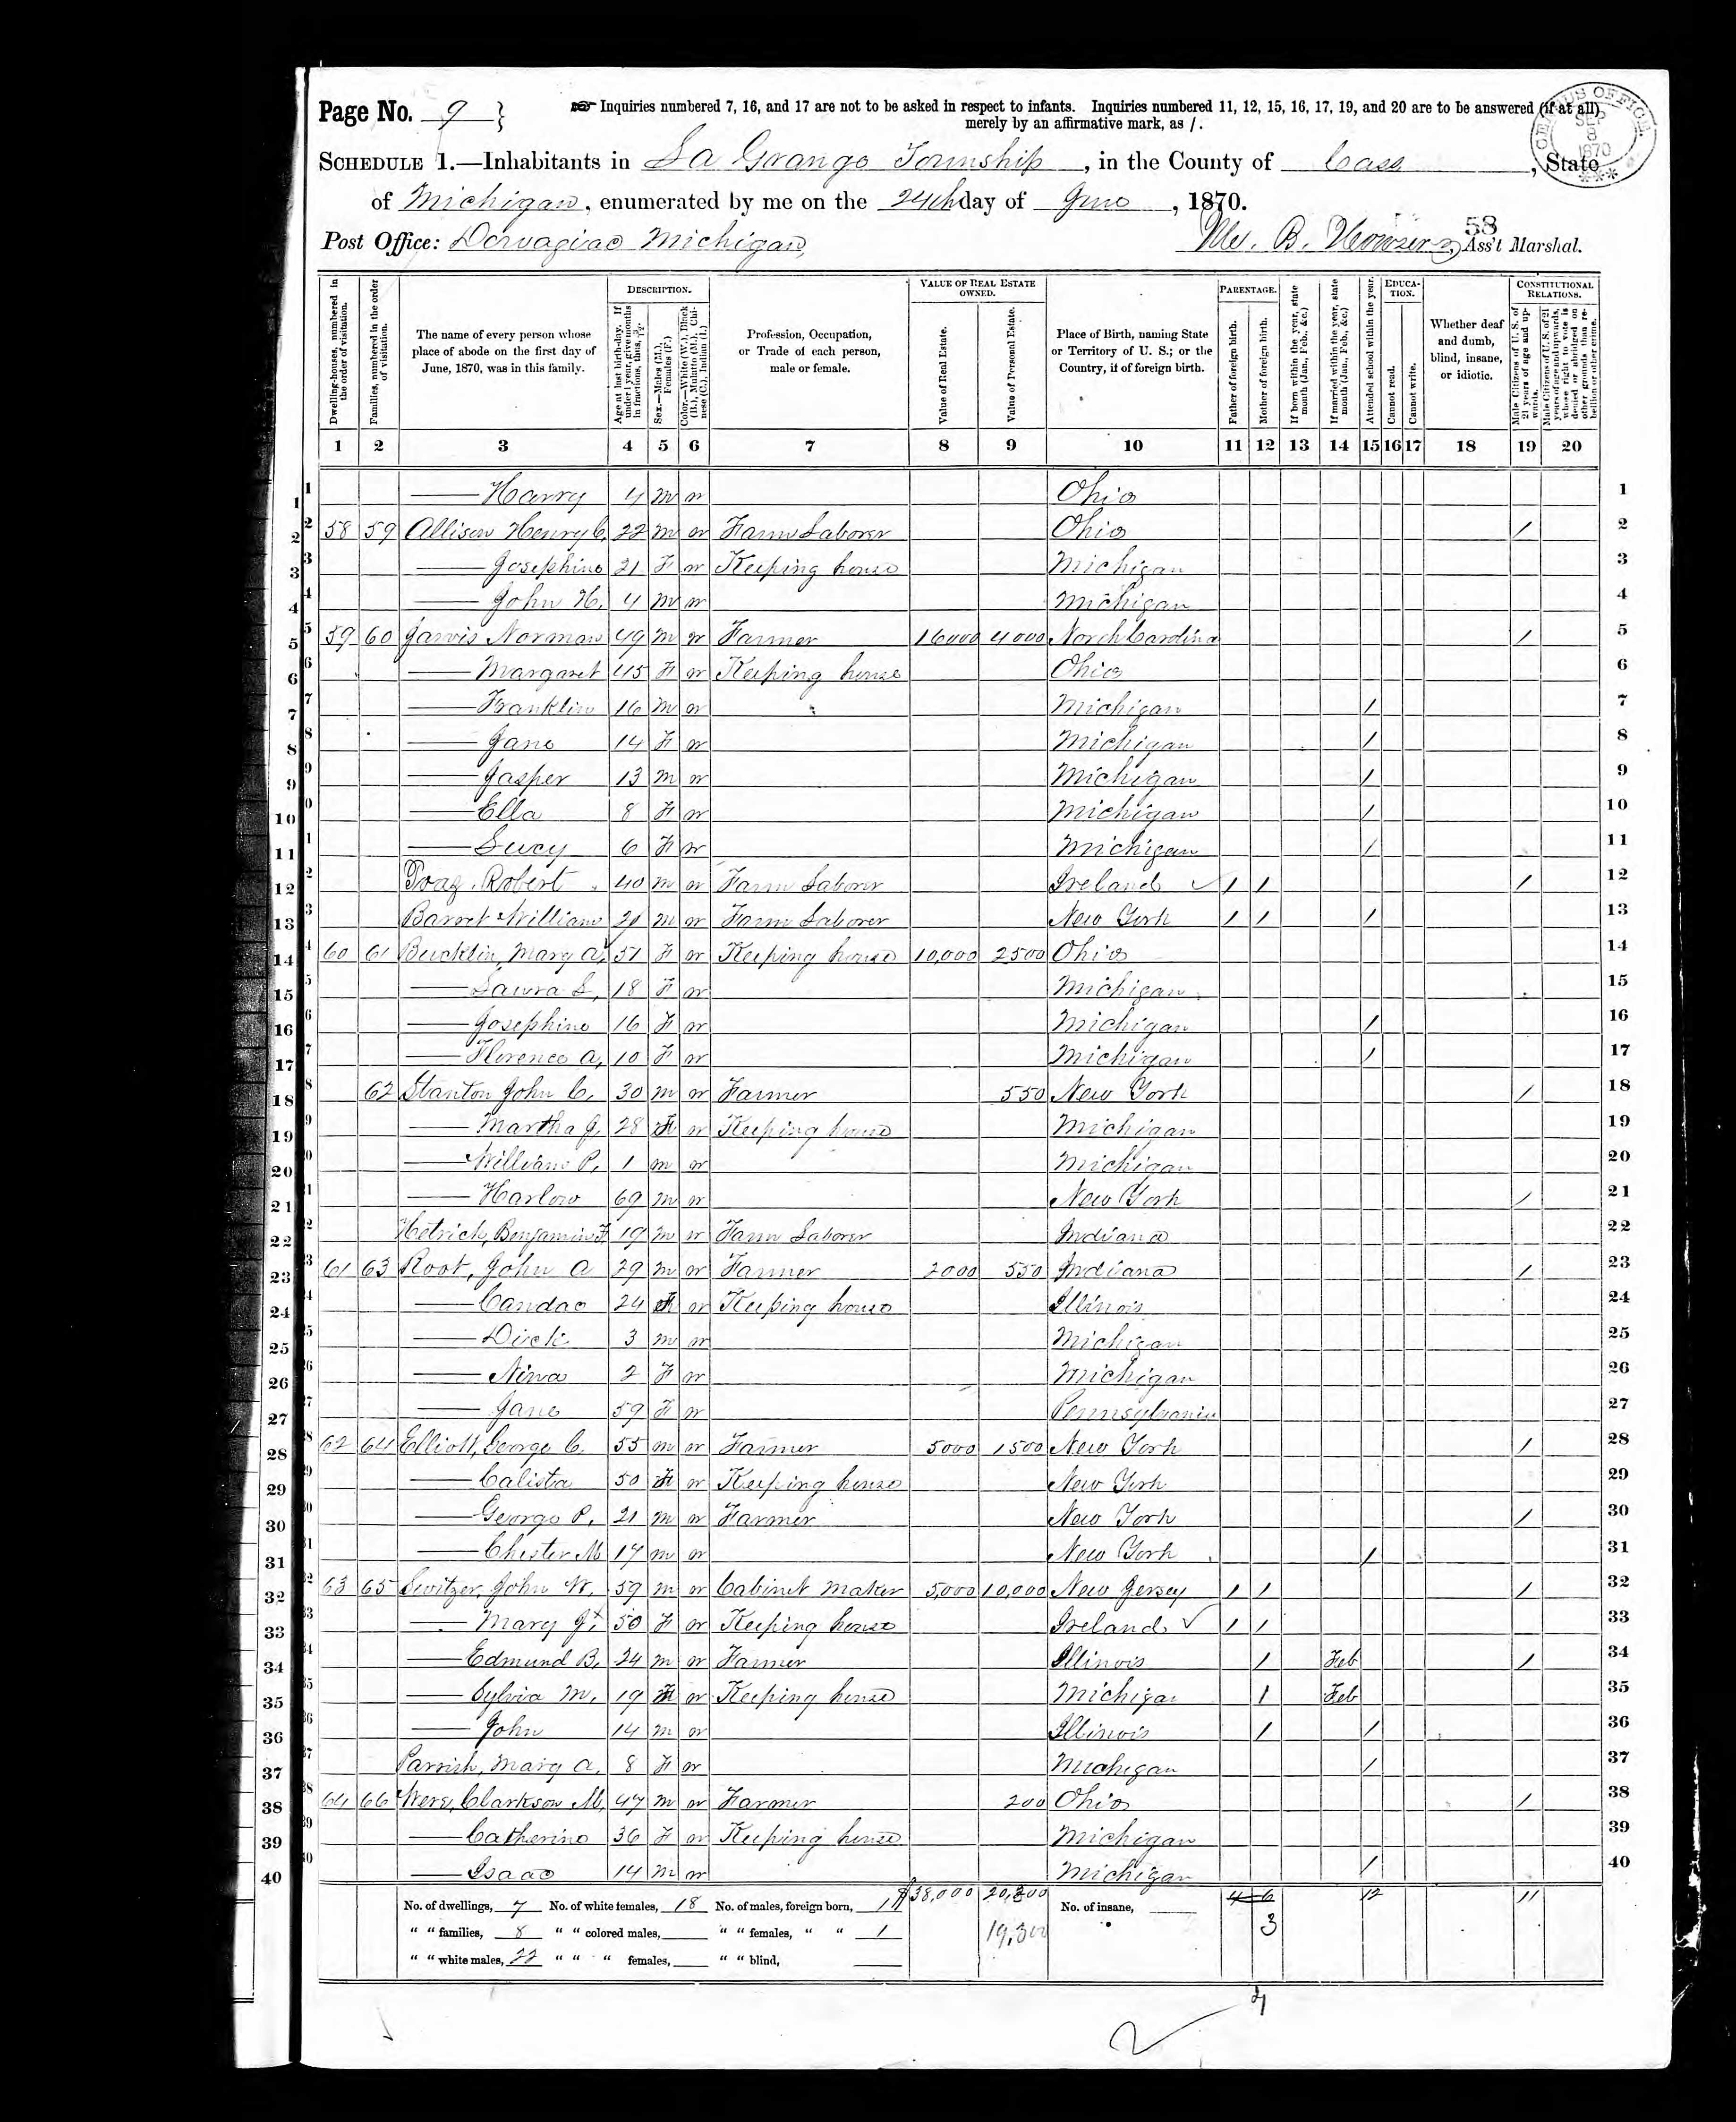 Page No. 9 } Inquiries numbered 7, 16, and 17 are not to be asked in respect to infants. Inquiries numbered 11, 12, 15, 16, 17, 19, and 20 are to be answered (if at all)
merely by an affirmative mark, as /.
CENSUS OFFICE SEP 8 1870
SCHEDULE 1.—Inhabitants in La Grange Township, in the County of Cass, State
of Michigan, enumerated by me on the 24th day of June, 1870.
58
Post Office: Dowagiac Michigan, B. Ass't Marshal.
DESCRIPTION. VALUE OF REAL ESTATE OWNED. PARENTAGE. EDUCATION. CONSTITUTIONAL RELATIONS.
Dwelling-houses, numbered in the order of visitation.
Families, numbered in the order of visitation.
The name of every person whose place of abode on the first day of June, 1870, was in this family.
Age at last birth-day. If under 1 year, give months in fractions, thus, 3/12.
Sex.—Males (M.), Females (F.)
Color.—White (W.), Black (B.), Mulatto (M.), Chinese (C.), Indian (I.)
Profession, Occupation, or Trade of each person, male or female.
Value of Real Estate.
Value of Personal Estate.
Place of Birth, naming State or Territory of U. S.; or the Country, if of foreign birth.
Father of foreign birth.
Mother of foreign birth.
If born within the year, state month (Jan., Feb., &c.)
If married within the year, state month (Jan., Feb., &c.)
Attended school within the year.
Cannot read.
Cannot write.
Whether deaf and dumb, blind, insane, or idiotic.
Male Citizens of U. S. of 21 years of age and upwards.
Male Citizens of U. S. of 21 years of age and upwards, whose right to vote is denied or abridged on other grounds than rebellion or other crime.
1 2 3 4 5 6 7 8 9 10 11 12 13 14 15 16 17 18 19 20
1 —— Harry 4 m w Ohio 1
2 58 59 Allison Henry C. 22 m w Farm Laborer Ohio / 2
3 —— Josephine 21 F w Keeping house Michigan 3
4 —— John H. 4 m w Michigan 4
5 59 60 Jarvis Norman 49 m w Farmer 16000 4000 North Carolina / 5
6 —— Margaret 45 F w Keeping house Ohio 6
7 —— Franklin 16 m w Michigan / 7
8 —— Jane 14 F w Michigan / 8
9 —— Jasper 13 m w Michigan / 9
10 —— Ella 8 F w Michigan / 10
11 —— Lucy 6 F w Michigan / 11
12 Robert 40 m w Farm Laborer Ireland ✓ / / / 12
13 Barret William m w Farm Laborer New York / / / 13
14 60 61 Bucklin, Mary A. 51 F w Keeping house 10,000 2500 Ohio 14
15 —— Laura L. 18 F w Michigan 15
16 —— Josephine 16 F w Michigan / 16
17 —— Florence A. 10 F w Michigan / 17
18 62 Stanton John C. 30 m w Farmer 550 New York / 18
19 —— Martha J. 28 F w Keeping house Michigan 19
20 —— William P. 1 m w Michigan 20
21 —— Harlow 69 m w New York / 21
22 Hetrick, Benjamin F. 19 m w Farm Laborer Indiana 22
23 61 63 Root, John A 29 m w Farmer 2000 550 Indiana / 23
24 —— Candac 24 F w Keeping house Illinois 24
25 —— Dick 3 m w Michigan 25
26 —— Nina 2 F w Michigan 26
27 —— Jane 59 F w Pennsylvania 27
28 62 64 Elliott, George C. 55 m w Farmer 5000 1500 New York / 28
29 —— Calista 50 F w Keeping house New York 29
30 —— George P. 21 m w Farmer New York / 30
31 —— Chester M 17 m w New York / 31
32 63 65 Switzer, John W. 59 m w Cabinet maker 5,000 10,000 New Jersey / / / 32
33 —— Mary J. 50 F w Keeping house Ireland ✓ / / 33
34 —— Edmund B. 24 m w Farmer Illinois / Feb / 34
35 —— Sylvia M. 19 F w Keeping house Michigan / Feb 35
36 —— John 14 m w Illinois / / 36
37 Parrish, Mary A. 8 F w Michigan / 37
38 64 66 Clarkson M. 47 m w Farmer 200 Ohio / 38
39 —— Catherine 36 F w Keeping house Michigan 39
40 —— Isaac 14 m w Michigan / 40
No. of dwellings, 7 No. of white females, 18 No. of males, foreign born, 1 $38,000 20,300 No. of insane, 4 6 12 11
" " families, 8 " " colored males, " " females, " " 1 19,300 3
" " white males, 22 " " " females, " " blind,
4